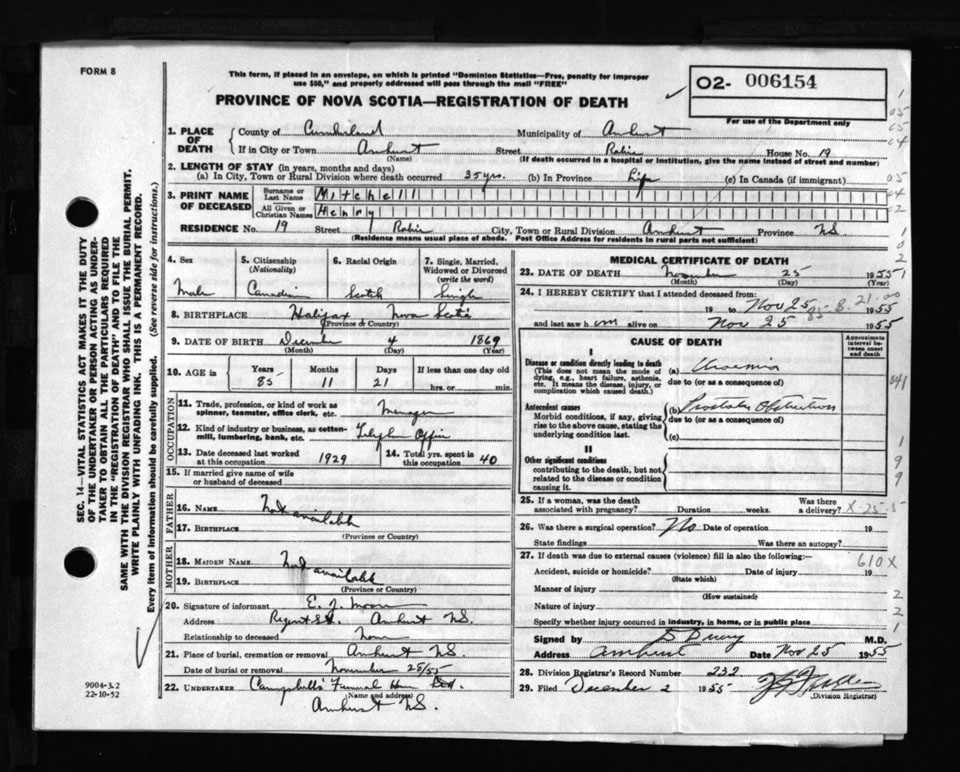 FORM 8
This form, if placed in an envelope, on which is printed "Dominion Statistics—Free, penalty for improper
use $50," and properly addressed will pass through the mail "FREE"
PROVINCE OF NOVA SCOTIA—REGISTRATION OF DEATH
02- 006154
For use of the Department only
1. PLACE OF DEATH
County of Cumberland Municipality of Amherst
If in City or Town Amherst Street House No. 19
(Name) (If death occurred in a hospital or institution, give the name instead of street and number)
2. LENGTH OF STAY (in years, months and days)
(a) In City, Town or Rural Division where death occurred 35 yrs. (b) In Province Life (c) In Canada (if immigrant)
3. PRINT NAME OF DECEASED
Surname or Last Name Mitchell
All Given or Christian Names Henry
RESIDENCE No. 19 Street City, Town or Rural Division Amherst Province NS
(Residence means usual place of abode. Post Office Address for residents in rural parts not sufficient)
4. Sex
Male
5. Citizenship
(Nationality)
Canadian
6. Racial Origin
Scotch
7. Single, Married, Widowed or Divorced
(write the word)
Single
8. BIRTHPLACE Halifax Nova Scotia
(Province or Country)
9. DATE OF BIRTH December 4 1869
(Month) (Day) (Year)
10. AGE in
Years Months Days If less than one day old
85 11 21 hrs. or min.
OCCUPATION
11. Trade, profession, or kind of work as spinner, teamster, office clerk, etc. Manager
12. Kind of industry or business, as cotton-mill, lumbering, bank, etc. Office
13. Date deceased last worked at this occupation 1929
14. Total yrs. spent in this occupation 40
15. If married give name of wife or husband of deceased
FATHER
16. NAME Not available
17. BIRTHPLACE
(Province or Country)
MOTHER
18. MAIDEN NAME Not available
19. BIRTHPLACE
(Province or Country)
20. Signature of informant E. J. Moore
Address Regent St. Amherst NS.
Relationship to deceased None
21. Place of burial, cremation or removal Amherst NS.
Date of burial or removal November 25/55
22. UNDERTAKER Campbell's Funeral Home Ltd.
(Name and address)
Amherst NS.
MEDICAL CERTIFICATE OF DEATH
23. DATE OF DEATH November 25 1955
(Month) (Day) (Year)
24. I HEREBY CERTIFY that I attended deceased from:
19 to Nov 25 1955
85-B-21-00
and last saw him alive on Nov 25 1955
CAUSE OF DEATH
Approximate interval between onset and death
I
Disease or condition directly leading to death
(This does not mean the mode of dying, e.g., heart failure, asthenia, etc. It means the disease, injury, or complication which caused death.)
(a) Uraemia
due to (or as a consequence of)
Antecedent causes
Morbid conditions, if any, giving rise to the above cause, stating the underlying condition last.
(b) Prostatic Obstruction
due to (or as a consequence of)
(c)
II
Other significant conditions
contributing to the death, but not related to the disease or condition causing it.
25. If a woman, was the death associated with pregnancy? Duration weeks. Was there a delivery?
X-25-5
26. Was there a surgical operation? No Date of operation 19
State findings Was there an autopsy?
27. If death was due to external causes (violence) fill in also the following:—
610X
Accident, suicide or homicide? Date of injury 19
(State which)
Manner of injury
(How sustained)
Nature of injury
Specify whether injury occurred in industry, in home, or in public place
Signed by M.D.
Address Amherst Date Nov 25 1955
28. Division Registrar's Record Number 232
29. Filed December 2 1955
(Division Registrar)
SEC. 14—VITAL STATISTICS ACT MAKES IT THE DUTY
OF THE UNDERTAKER OR PERSON ACTING AS UNDER-
TAKER TO OBTAIN ALL THE PARTICULARS REQUIRED
IN THE "REGISTRATION OF DEATH" AND TO FILE THE
SAME WITH THE DIVISION REGISTRAR WHO SHALL ISSUE THE BURIAL PERMIT.
WRITE PLAINLY WITH UNFADING INK. THIS IS A PERMANENT RECORD.
Every item of information should be carefully supplied. (See reverse side for instructions.)
9004-3.2
22-10-52